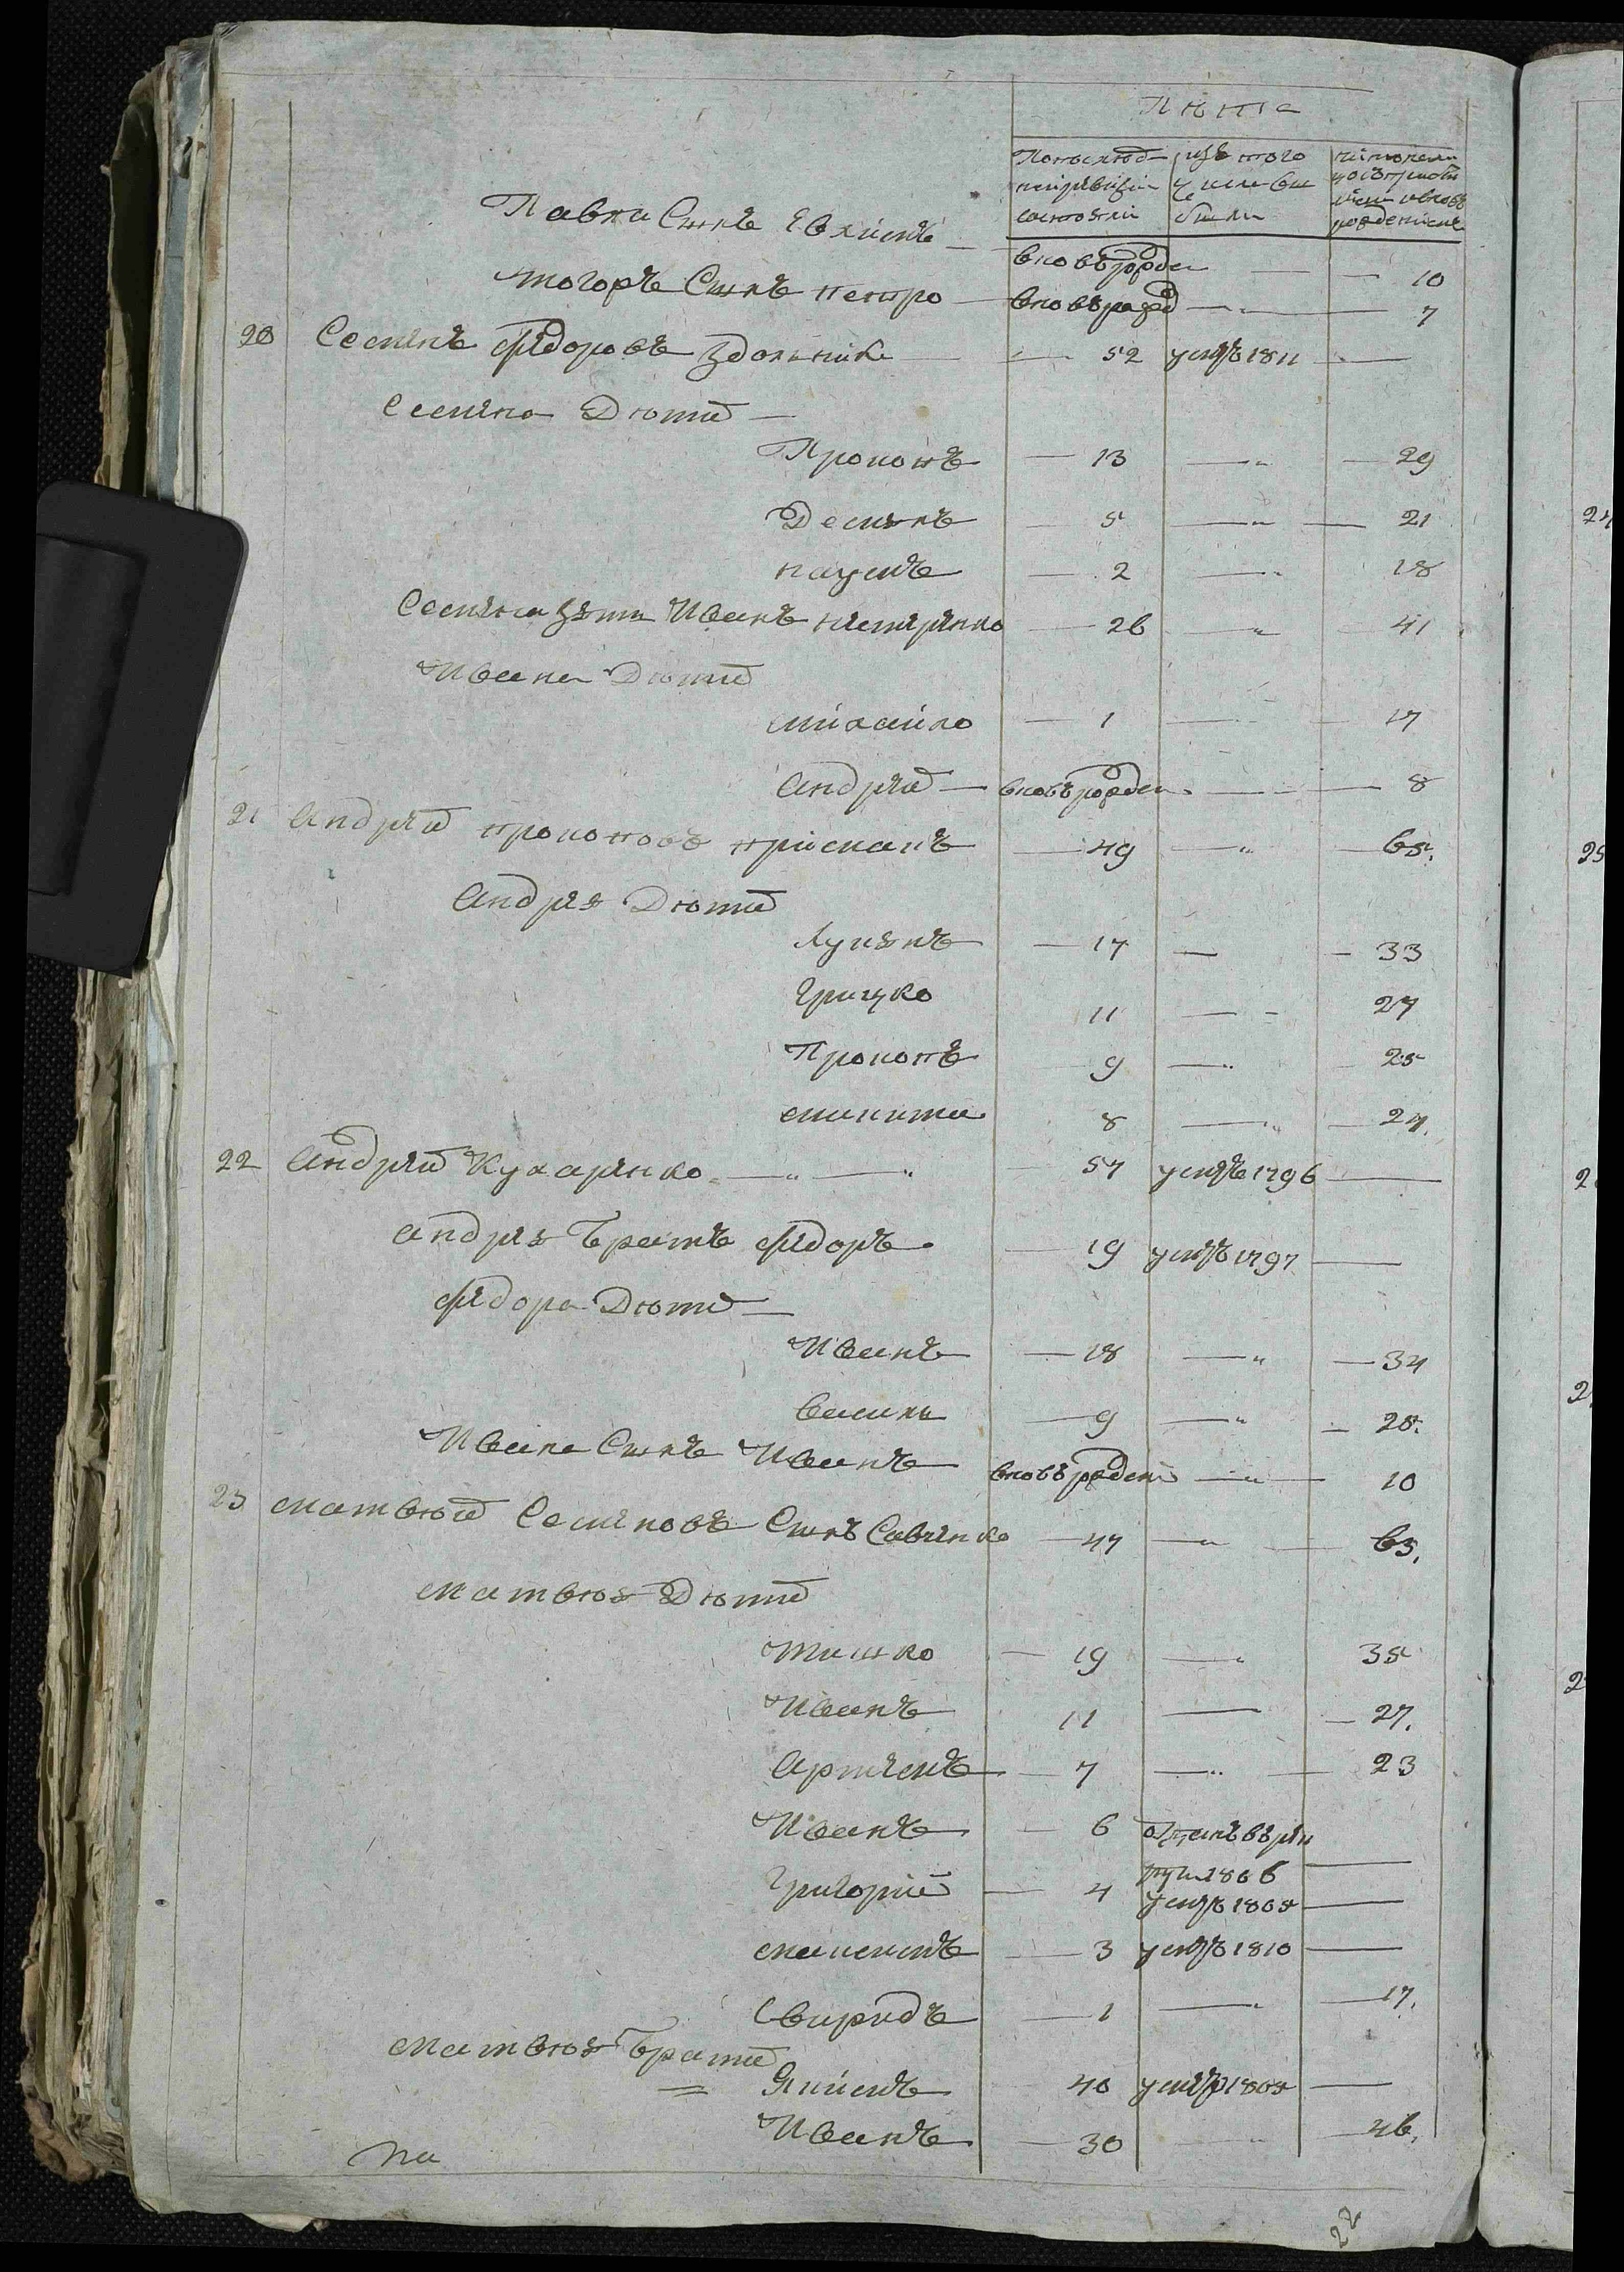 Лѣта
По последней ревизіи состояли
изъ того числа выбыли
Павла Сынъ Евхимъ — вновь рожден — 10
Сынъ Петро — вновь рожд — 7
20 Семенъ Федоровъ Здольникъ — 52 умеръ 1811 —
Семена Дѣти —
Прокопъ — 13 — 29
Демянъ — 5 — 21
Наумъ — 2 — 18
Семена зять Иванъ — 26 — 41
Ивана Дѣти
Михайло — 1 — 17
Андрей — вновь рожден — 8
21 Андрей Прокоповъ — 49 — 65.
Андрея Дѣти
Лукянъ — 17 — 33
Грицко 11 — 27
Прокопъ 9 — 25
Микита 8 — 24.
22 Андрей Кухаренко — 57 умеръ 1796 —
Андрея Братъ Федоръ — 19 умеръ 1797 —
Федора Дѣти —
Иванъ — 18 — 34
Василь — 9 — 25.
Ивана Сынъ Иванъ вновь рожден — 10
23 Матвѣй Семеновъ Сынъ Савченко — 47 — 63.
Матвѣя Дѣти
Тишко — 19 — 35
Иванъ 11 — 27.
Артемъ — 7 — 23
Иванъ — 6 отданъ въ рек
руты 1806 —
Григорій — 4 умеръ 1805 —
Максимъ — 3 умеръ 1810 —
Свиридъ — 1 — 17.
Матвѣя Братя
Якимъ 40 умеръ 1805 —
Иванъ — 30 — 46.
На
22